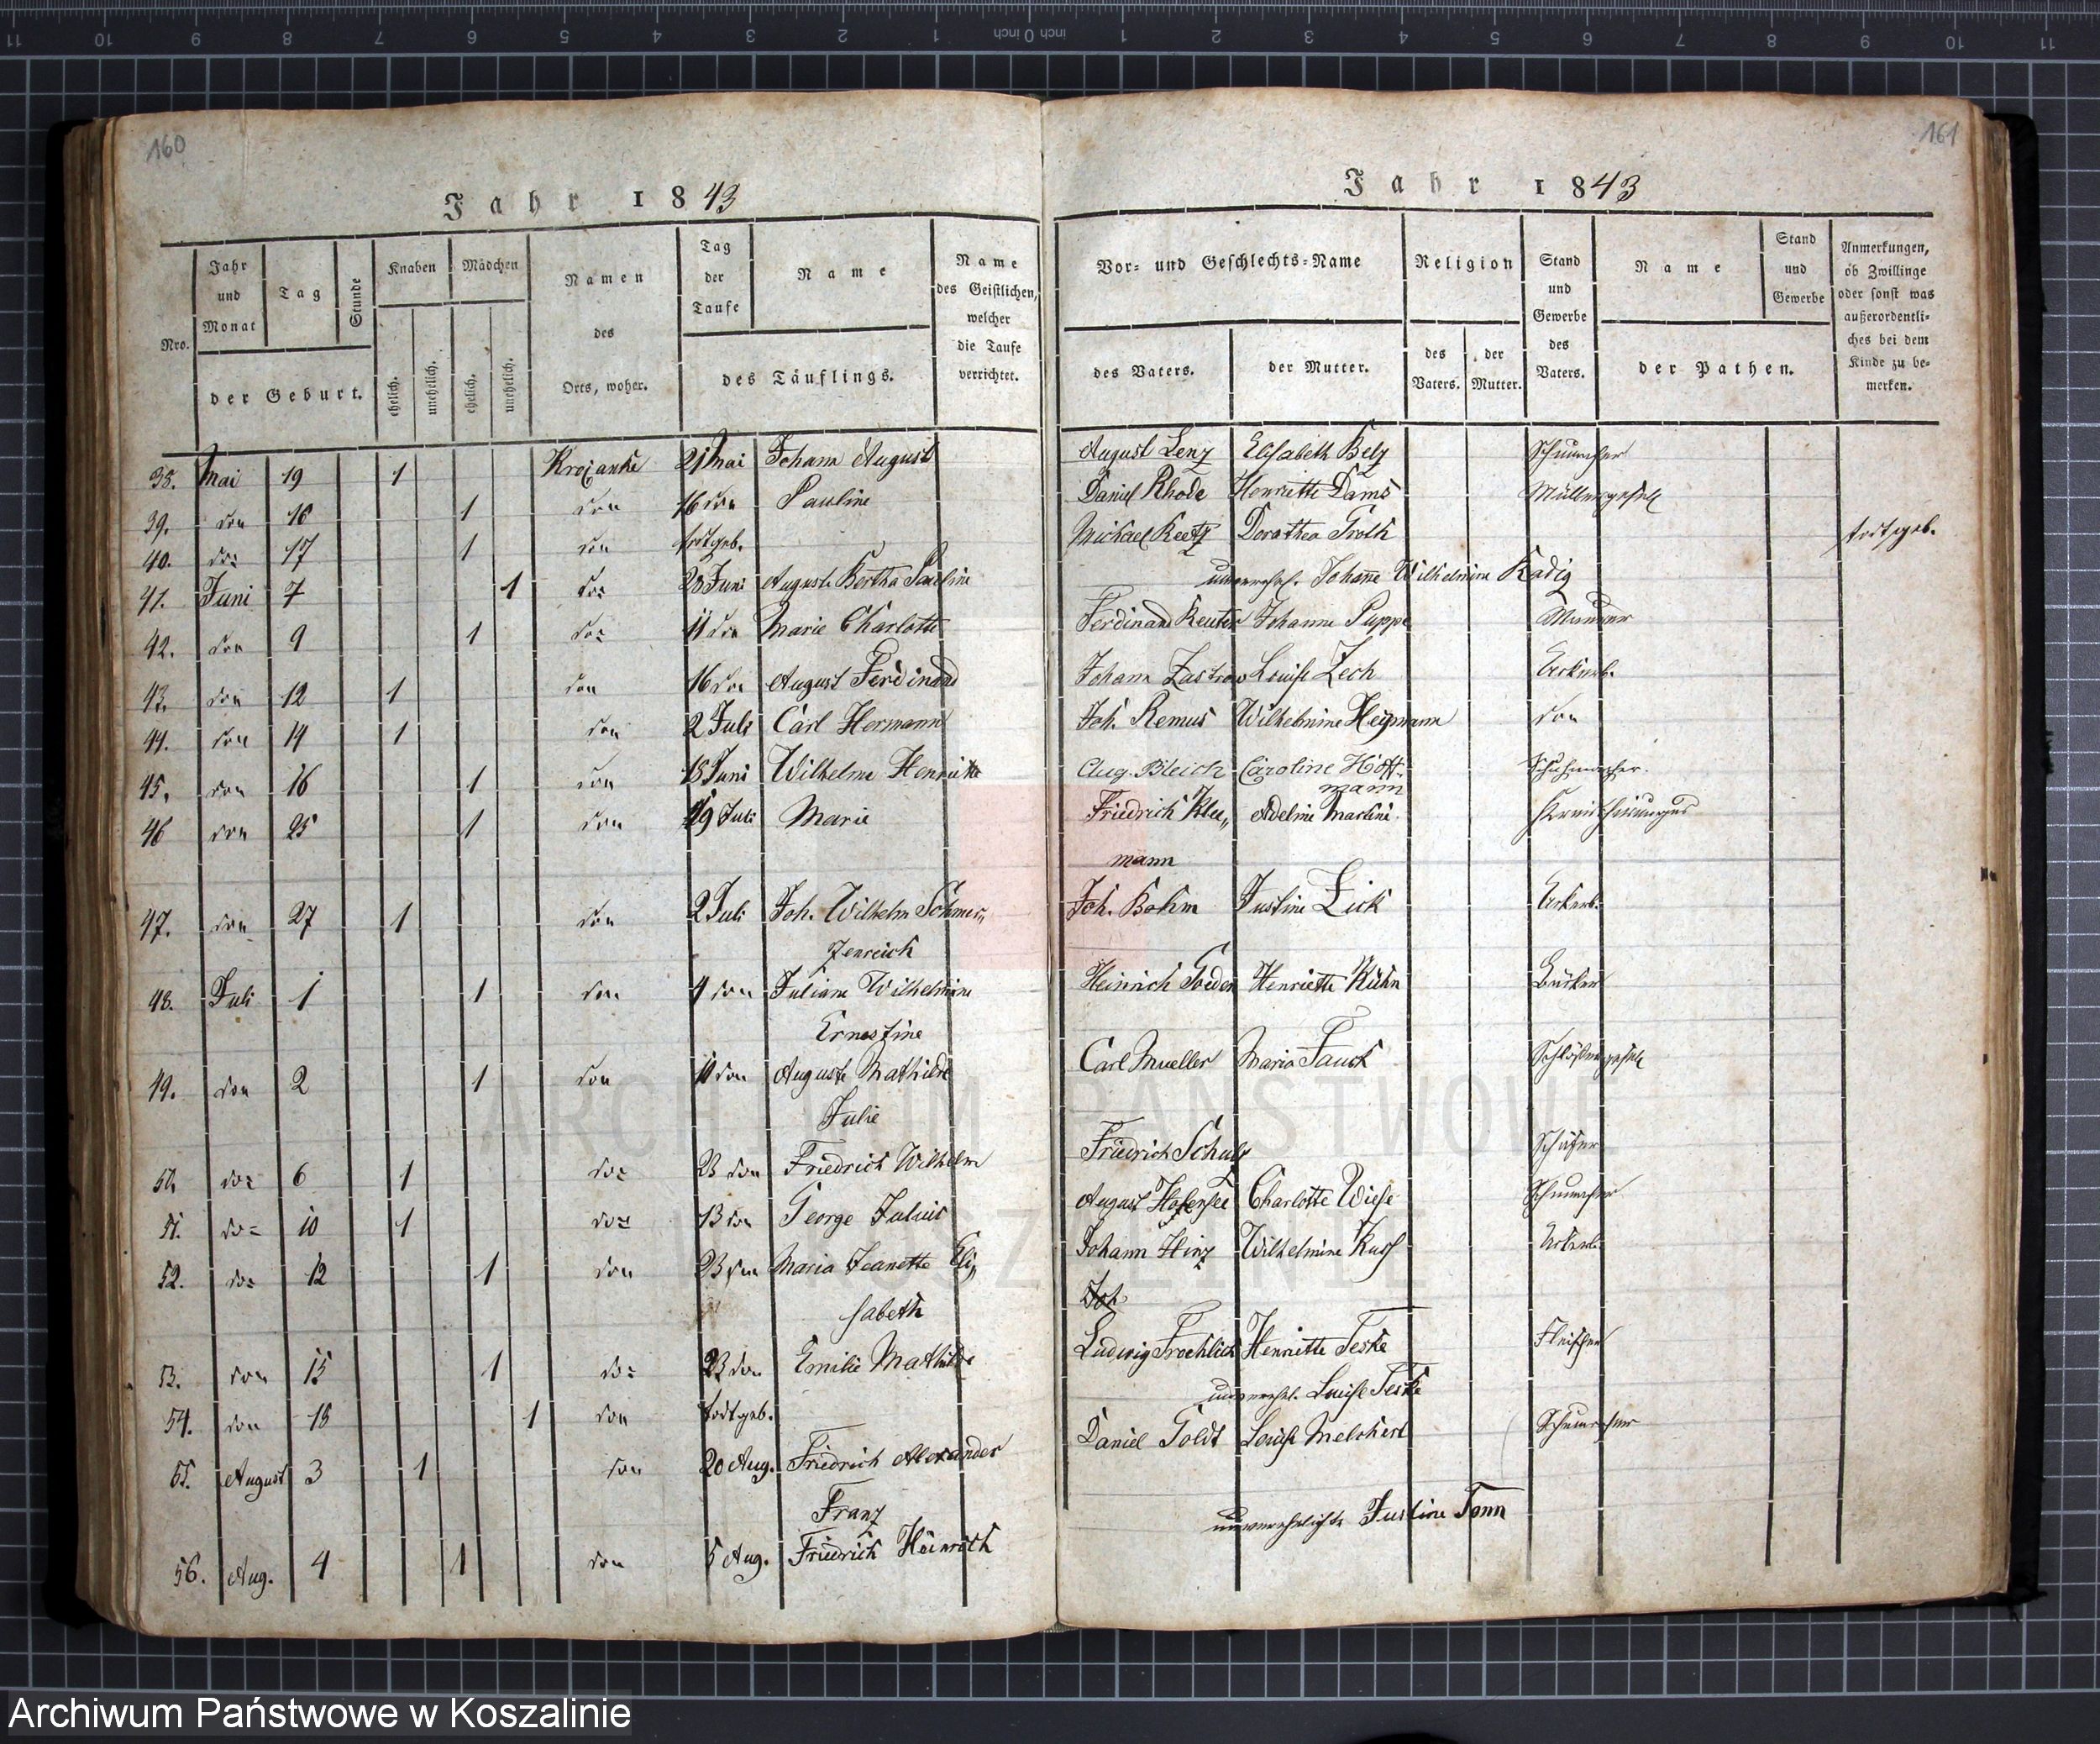 11 10 9 8 7 6 5 4 3 2 1 inch 0 inch 1 2 3 4 5 6 7 8 9 10 11
160
161
Jahr 1843
Jahr 1843
Nro.
Jahr und Monat
Tag
Stunde
der Geburt.
Knaben
Mädchen
ehelich.
unehelich.
ehelich.
unehelich.
Namen des Orts, woher.
Tag der Taufe
Name
des Täuflings.
Name des Geistlichen, welcher die Taufe verrichtet.
Vor- und Geschlechts-Name
des Vaters.
der Mutter.
Religion
des Vaters.
der Mutter.
Stand und Gewerbe des Vaters.
Name
Stand und Gewerbe
der Pathen.
Anmerkungen, ob Zwillinge oder sonst was außerordentliches bei dem Kinde zu bemerken.
38. Mai 19 1 Krojanke 21 Mai Johann August August Lenz Elisabeth Belz
39. do 16 1 do 16 do Pauline Daniel Rhode Henriette Dams Müllergesell
40. do 17 1 do todtgeb. Michael Reetz Dorothea Troth todtgeb.
41. Juni 7 1 do 28 Juni Auguste Bertha Pauline unverehel. Johanne Wilhelmine Radig
42. do 9 1 do 11 do Marie Charlotte Ferdinand Reuter Johanne Puppe Maurer
43. do 12 1 do 16 do August Ferdinand Johann Zastrow Louise Zech Ackerb.
44. do 14 1 do 2 Juli Carl Hermann Joh. Remus Wilhelmine Heymann do
45. do 16 1 do 18 Juni Wilhelmine Henriette Aug. Bleich Caroline Hoff-
mann Schuhmacher.
46 do 25 1 do 19 Juli Marie Friedrich Klee„ Adeline Martini
mann
47. do 27 1 do 2 Juli Joh. Wilhelm Schmer„ Joh. Bohm Justine Zick Ackerb.
zenreich
48. Juli 1 1 do 4 do Juliane Wilhelmine Heinrich Heinrich Kühn
Ernestine
49. do 2 1 do 11 do Auguste Mathilde Carl Mueller Maria Fauck Schlossergesell
Julie
50. do 6 1 do 23 do Friedrich Wilhelm Friedrich Schulz Schäfer
51. do 10 1 do 13 do George Julius August Charlotte Wiese
52. do 12 1 do 23 do Maria Jeanette Eli„ Johann Hinz Wilhelmine Ackerb.
sabeth Joh.
53. do 15 1 do 23 do Emilie Mathilde Ludwig Froehlich Henriette Teske Fleischer
54. do 18 1 do todtgeb. unverehel. Louise Teske
55. August 3 1 do 20 Aug. Friedrich Alexander Daniel Toldt Louise Melchert
Franz
56. Aug. 4 1 do 5 Aug. Friedrich Heinrich unverehelichte Justine Tonn
ARCHIWUM PAŃSTWOWE
W KOSZALINIE
Archiwum Państwowe w Koszalinie